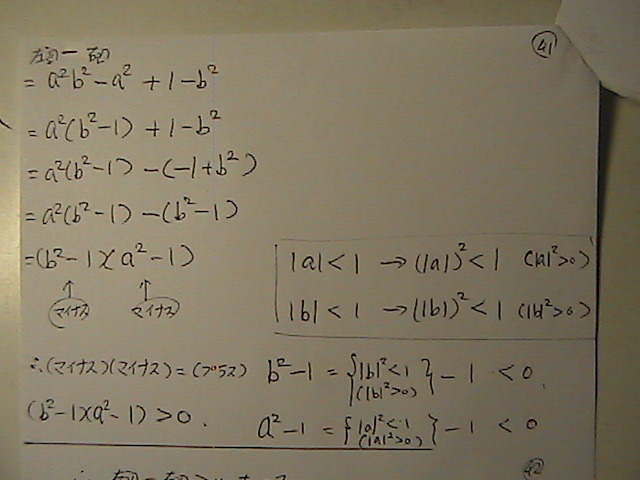 ㊶
左辺ー右辺
= a²b² - a² + 1 - b²
= a²(b² - 1) + 1 - b²
= a²(b² - 1) - (-1 + b²)
= a²(b² - 1) - (b² - 1)
= (b² - 1)(a² - 1)
↑ ↑
マイナス マイナス
|a| < 1 → (|a|)² < 1 (|a|² > 0)
|b| < 1 → (|b|)² < 1 (|b|² > 0)
∴(マイナス)(マイナス) = (プラス)
b² - 1 = {|b|² < 1 (|b|² > 0)} - 1 < 0
(b² - 1)(a² - 1) > 0.
a² - 1 = {|a|² < 1 (|a|² > 0)} - 1 < 0
㊷